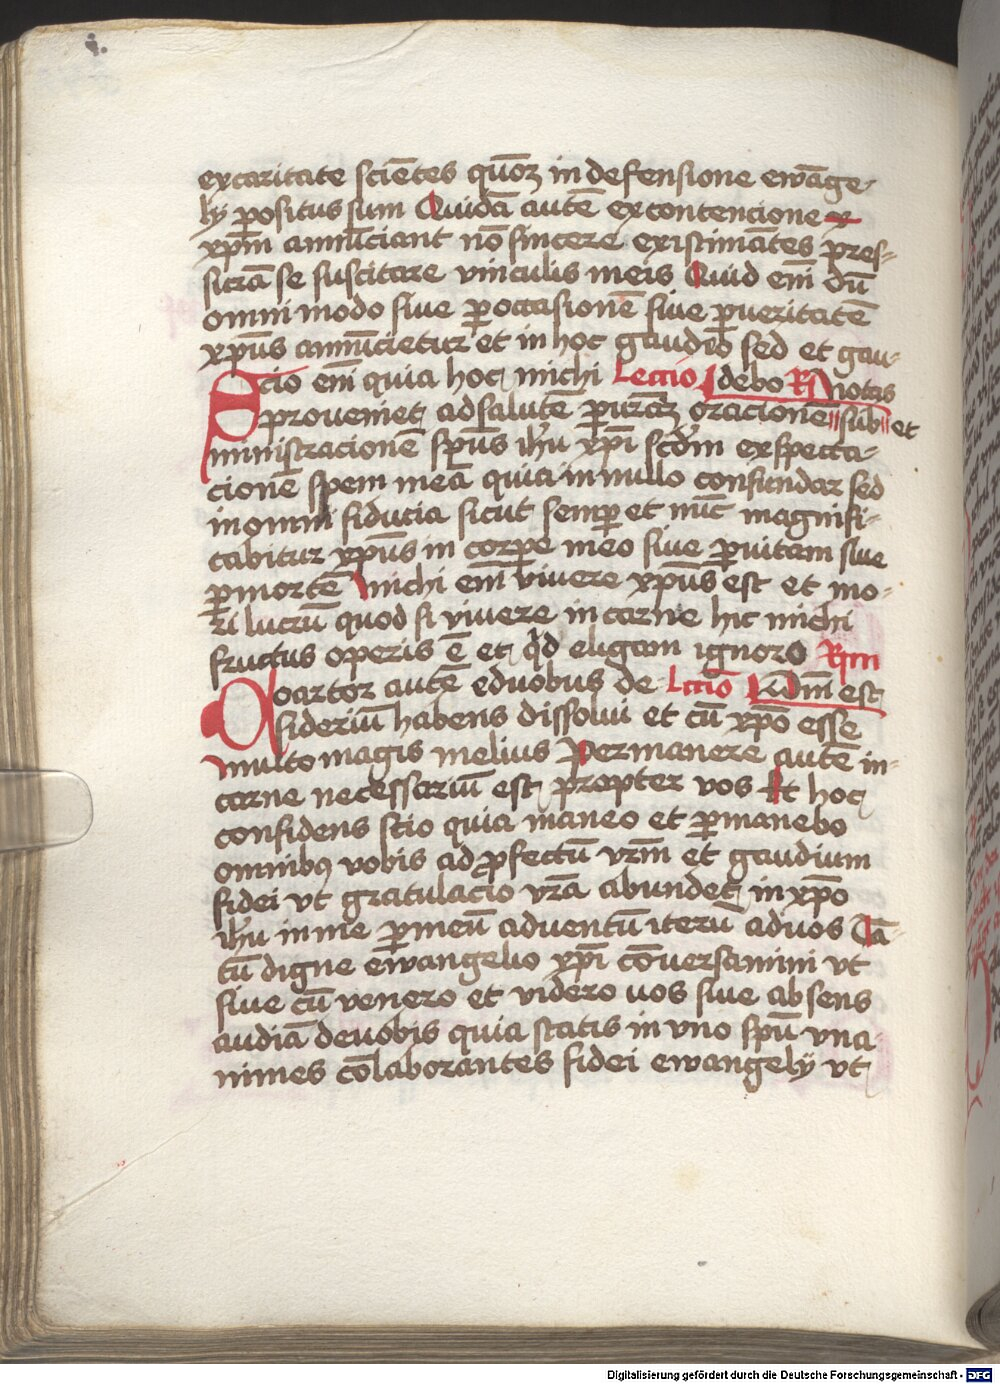 ex caritate sciētes qm̄ōꝫ in defensione ewāge-
lÿ positus sum Quidā autē ex contencione
xp̄m annūciant nō sincere existimātes pres-
surā se suscitare vinculis meis Quid em̄ dū
omni modo siue ꝑ occasionē siue ꝑ veritatē
xp̄us annūcietur et in hoc gaudeo sed et gau-
Scio em̄ quia hoc michi Leccio debo Rͫ notas
proueniet ad salutē ꝑ vr̄aꝫ oracionē sub et
ministracionē sp̄us ih̄u xp̄i scd̄m expecta-
cionē spem meā quia in nullo confundar sed
in omni fiducia sicut semꝑ et nūc magnifi-
cabitur xp̄us in corpe meo siue ꝑ vitam siue
ꝑ mortē michi em̄ viuere xp̄us est et mo-
ri lucrū quod si viuere in carne hic michi
fructus operis ē et qd eligam ignoro
Coartor autē e duobus de Lcciō dm̄ est
siderium habens dissolui et cū xp̄o esse
multo magis melius Permanere autē in
carne necessariū est propter vos Et hoc
confidens scio quia maneo et ꝑmanebo
omnibꝰ vobis ad ꝓfectū vr̄m et gaudium
fidei vt gratulacio vr̄a abundet in xp̄o
ih̄u in me ꝑ meū aduentū iterū ad vos Tā-
tū digne ewangelio xp̄i cōuersamini vt
siue cū venero et videro uos siue absens
audiā de vobis quia statis in vno sp̄u vna
nimes cōlaborantes fidei ewangelÿ vt
Digitalisierung gefördert durch die Deutsche Forschungsgemeinschaft - DFG